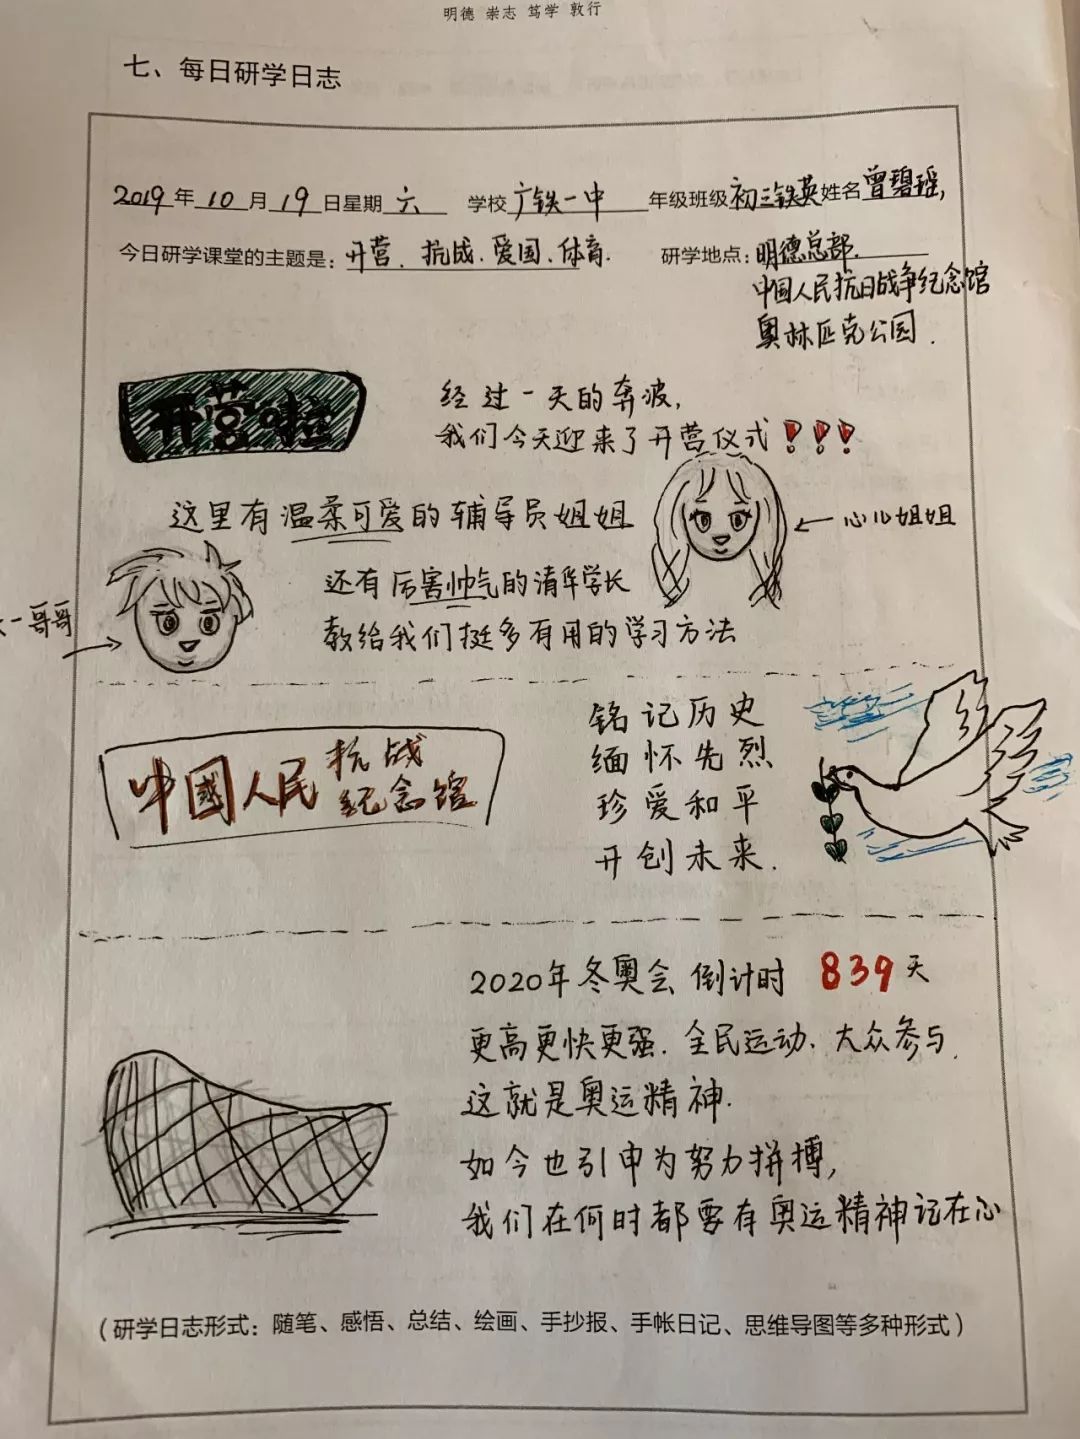 明德 崇志 笃学 敦行
七、每日研学日志
2019年10月19日星期六 学校广铁一中 年级班级初三铁英姓名曾碧瑶,
今日研学课堂的主题是:开营、抗战、爱国、体育. 研学地点:明德总部.
中国人民抗日战争纪念馆
奥林匹克公园.
开营啦
经过一天的奔波,
我们今天迎来了开营仪式!!!
这里有温柔可爱的辅导员姐姐
←心儿姐姐
还有厉害帅气的清华学长
一哥哥
教给我们挺多有用的学习方法
铭记历史
缅怀先烈
珍爱和平
开创未来.
中國人民抗战纪念馆
2020年冬奥会 倒计时 839天
更高更快更强. 全民运动、大众参与.
这就是奥运精神.
如今也引申为努力拼搏,
我们在何时都要有奥运精神记在心
(研学日志形式:随笔、感悟、总结、绘画、手抄报、手帐日记、思维导图等多种形式)